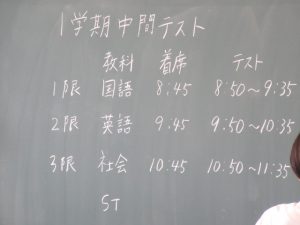 1学期中間テスト
教科 着席 テスト
1限 国語 8:45 8:50～9:35
2限 英語 9.45 9:50～10:35
3限 社会 10.45 10:50～11:35
ST